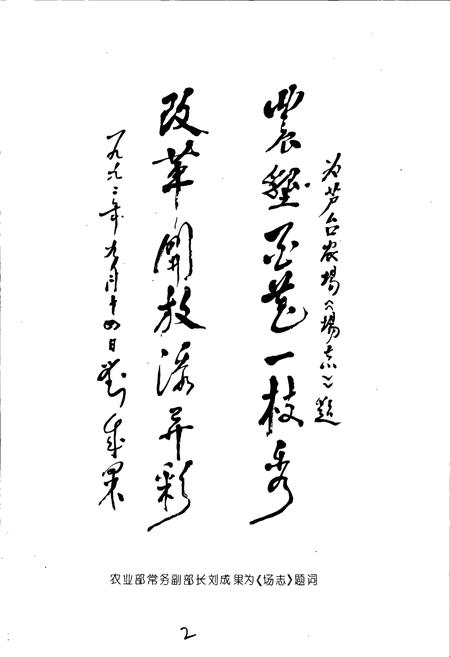 为芦台农場《場志》题
農墾百花一枝秀
改革開放添异彩
一九九三年九月十四日 劉成果
农业部常务副部长刘成果为《场志》题词
2